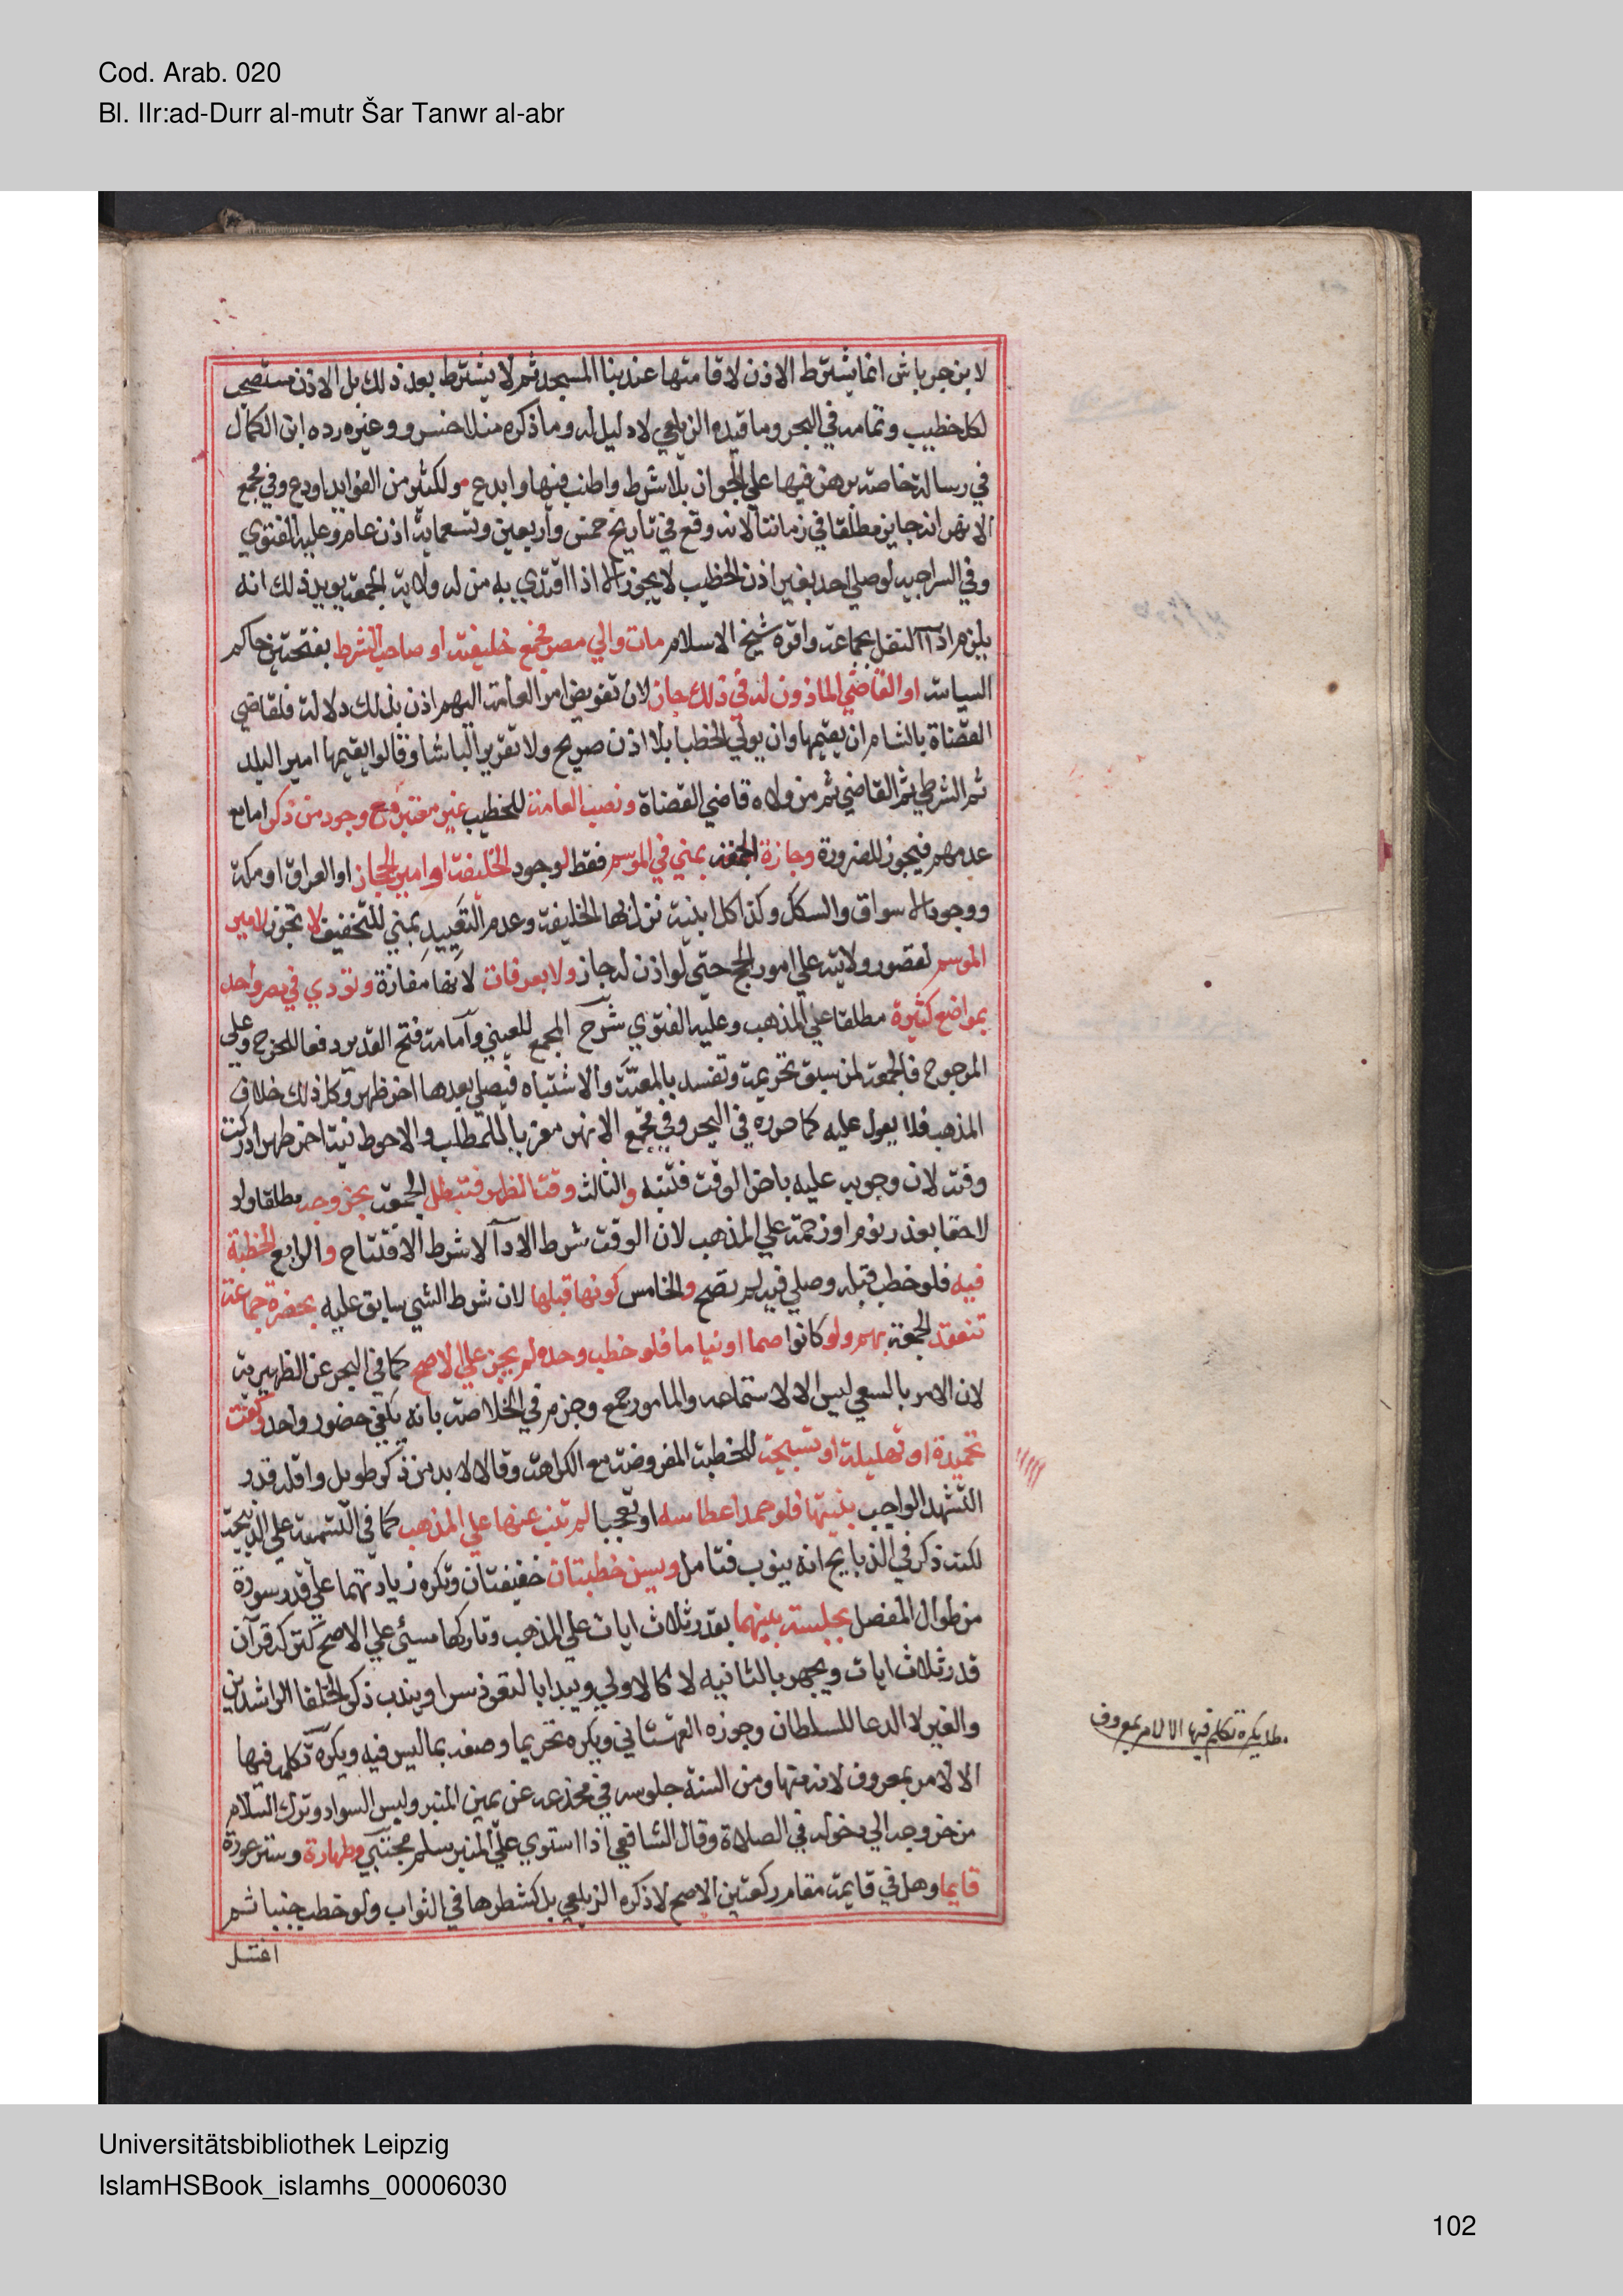 Cod. Arab. 020
Bl. IIr:ad-Durr al-mutr Šar Tanwr al-abr
لابن جرباش انما يشترط الاذن لاقامتها عند بنا المسجد ثم لا يشترط بعد ذلك بل الاذن مستصحب
لكل خطيب وتمامه في البحر وما قيده الزيلعي لا دليل له وما ذكره منلا خسرو وغيره رده ابن الكمال
في رسالة خاصة برهن فيها علي الجواز بلا شرط واطنب فيها وابدع ولكثير من الفوايد اودع وفي مجمع
الانهر انه جايز مطلقا في زماننا لانه وقع في تاريخ خمس واربعين وتسعماية اذن عام وعليه الفتوي
وفي السراجيه لو صلي احد بغير اذن الخطيب لا يجوز الا اذا اقتدي به من له ولاية الجمعة يويد ذلك انه
يلزم ادآ النفل بجماعة واقره شيخ الاسلام مات والي مصر فجمع خليفته او صاحب الشرط بفتحتين حاكم
السياسة او القاضي الماذون له في ذلك جاز لان تفويض امر العامة اليهم اذن بذلك دلالة فلقاضي
القضاة بالشام ان يقيمها وان يولي الخطبا بلا اذن صريح ولا تقرير الباشا وقالوا يقيمها امير البلد
ثم الشرطي ثم القاضي ثم من ولاه قاضي القضاة ونصب العامة للخطيب غير معتبر مع وجود من ذكر اما مع
عدمهم فيجوز للضرورة وجازة الجمعة بمني في الموسم فقط لوجود الخليفة او امير الحجاز او العراق او مكة
ووجود الاسواق والسكك وكذا كل ابنية نزل بها الخليفة وعدم التقييد بمني للتخفيف لا تجوز لامير
الموسم لقصور ولايته علي امور الحج حتي لو اذن له جاز ولا بعرفات لانها مفازة وتؤدي في مصر واحد
بمواضع كثيرة مطلقا علي المذهب وعليه الفتوي شرح المجمع للعيني وآمامة فتح القدير دفعا للحرج وعلي
المرجوح فالجمعة لمن سبق تحريمة وتفسد بالمعيَّة والاشتباه فيصلي بعدها اخر ظهر وكل ذلك خلاف
المذهب فلا يعول عليه كما حرره في البحر وفي مجمع الانهر معزيا للمطلب والاحوط نية اخر ظهر ادركت
وقته لان وجوبه عليه باخر الوقت فتنبه والثالث وقت الظهر فتبطل الجمعة بخروجه مطلقا ولو
لاحقا بعذر نوم او زحمة علي المذهب لان الوقت شرط الادآ لا شرط الافتتاح والرابع الخطبة
فيه فلو خطب قبله وصلي فيه لم تصح والخامس كونها قبلها لان شرط الشي سابق عليه بحضرة جماعة
تنعقد الجمعة بهم ولو كانوا صما او نياما فلو خطب وحده لم يجز علي الاصح كما في البحر عن الظهيرية
لان الامر بالسعي ليس الا لاستماعه والمامور جمع وجزم في الخلاصة بانه يكفي حضور واحد وكفت
تحميدة او تهليلة او تسبيحة للخطبة المفروضة مع الكراهة وقالا لا بد من ذكر طويل واقله قدر
التشهد الواجب بنيتها فلو حمد لعطاسه او تعجبا لم تنب عنها علي المذهب كما في التسمية علي الذبيحة
لكنه ذكر في الذبايح انه ينوب فتامل ويسن خطبتان خفيفتان وتكره زيادتهما علي قدر سورة
من طوال المفصل بجلسة بينهما بقدر ثلاث ايات علي المذهب وتاركها مسئ علي الاصح كتركه قرآن
قدر ثلاث ايات ويجهر بالثانيه لا كالاولي ويبدا بالتعوذ سرا ويندب ذكر الخلفا الراشدين
والغير لا الدعا للسلطان وجوزه القهستاني ويكره تحريما وصفه بما ليس فيه ويكره تكلمه فيها
الا لامر بمعروف لانه منها ومن السنة جلوسه في مخدعه عن يمين المنبر ولبس السواد وترك السلام
من خروجه الي دخوله في الصلاة وقال الشافعي اذا استوي علي المنبر سلم مجتبي وطهارة وستر عورة
قايما وهل في قايمة مقام ركعتين الاصح لا ذكره الزيلعي بل كشطرها في الثواب ولو خطب جنبا ثم
اغتسل
مط يكره تكلم فيها الا لامر بمعروف
Universitätsbibliothek Leipzig
IslamHSBook_islamhs_00006030
102